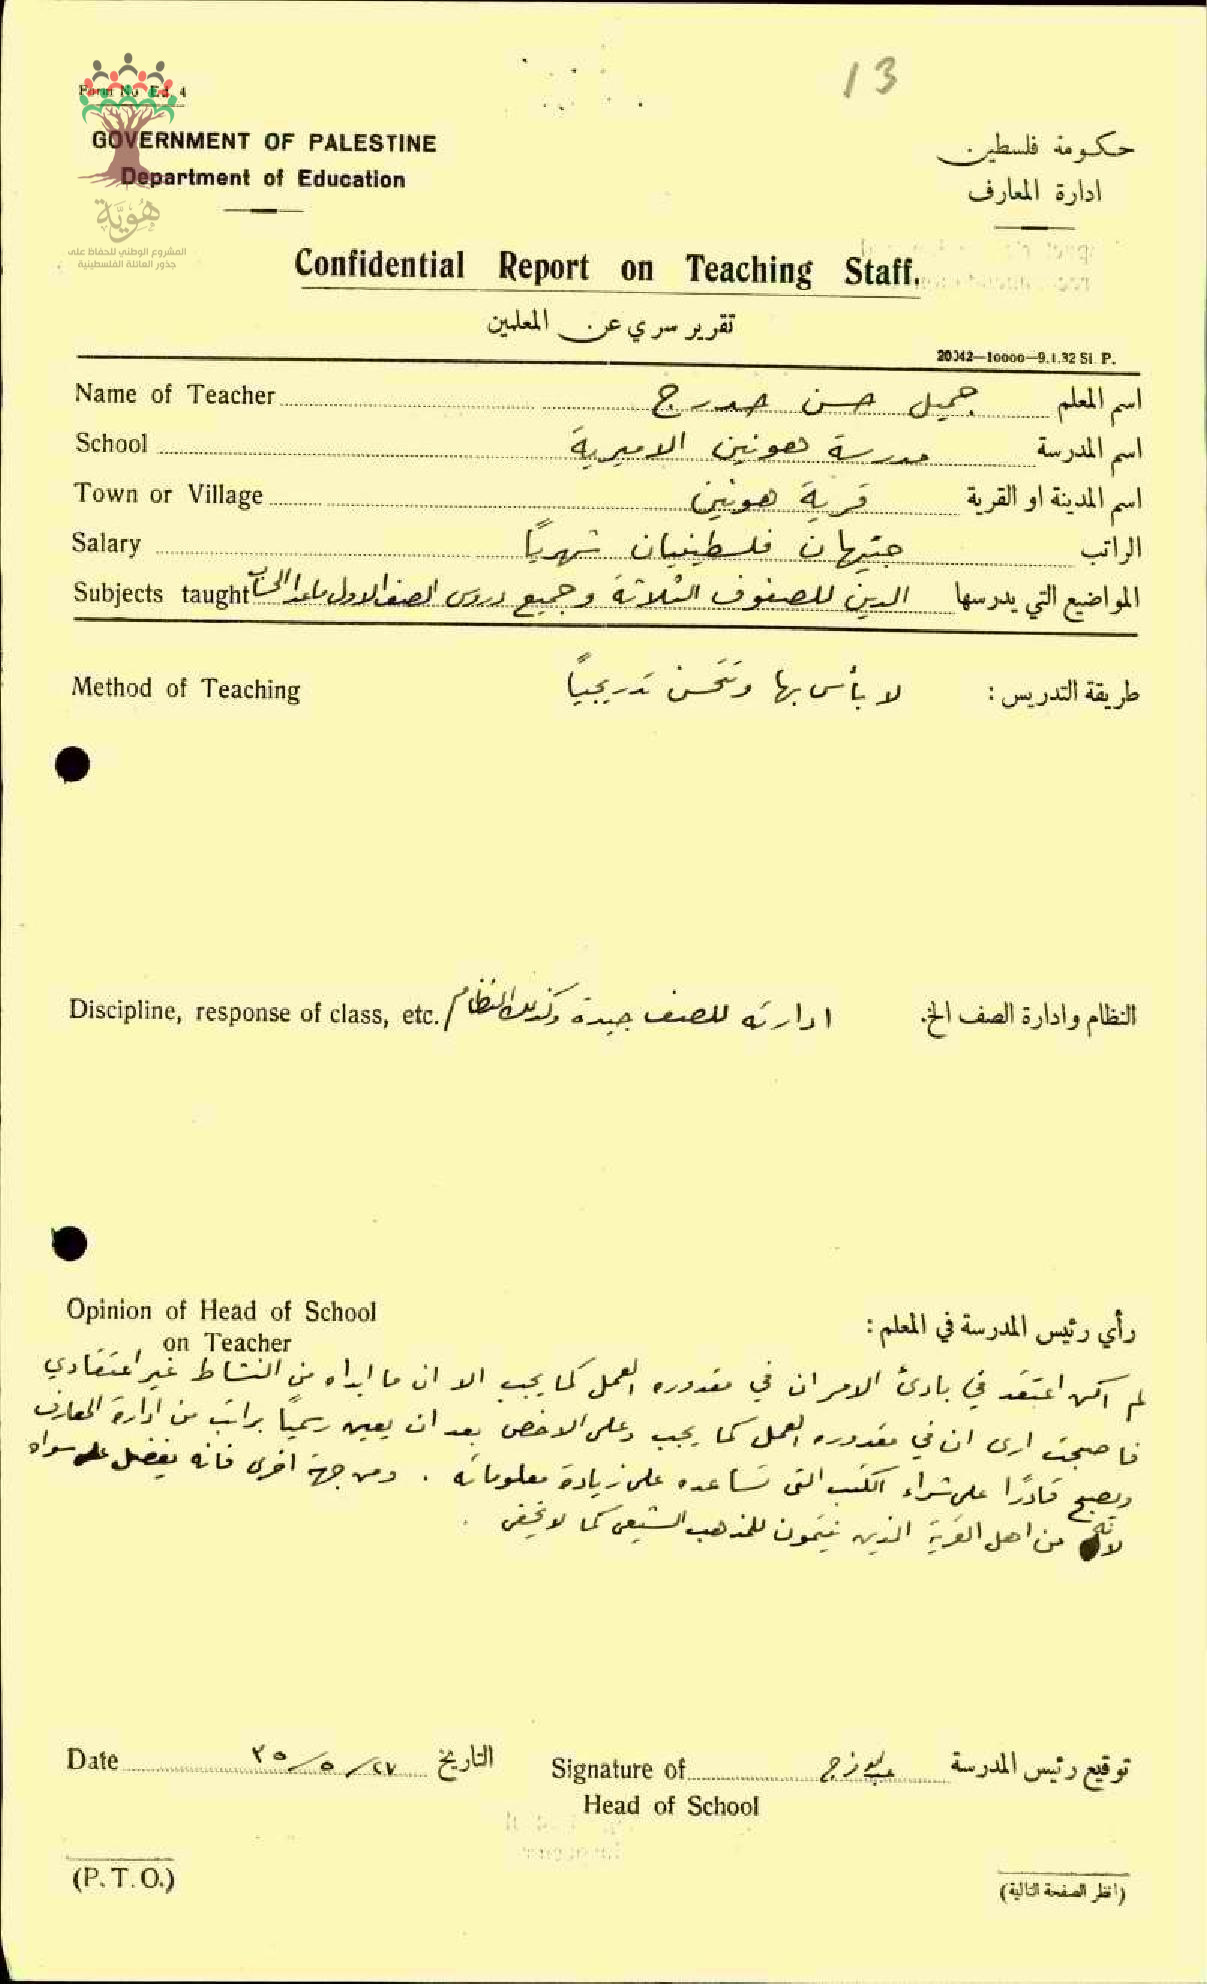 13
Form No Ed. 4
GOVERNMENT OF PALESTINE
Department of Education
حكومة فلسطين
ادارة المعارف
هُوِيَّة
المشروع الوطني للحفاظ على
جذور العائلة الفلسطينية
Confidential Report on Teaching Staff.
تقرير سري عن المعلمين
20042—10000—9.1.32 SI. P.
Name of Teacher جميل حسن صدرج اسم المعلم
School مدرسة هونين الاميرية اسم المدرسة
Town or Village قرية هونين اسم المدينة او القرية
Salary جنيهان فلسطينيان شهرياً الراتب
Subjects taught الدين للصفوف الثلاثة وجميع دروس الصف الاول ماعدا الحساب المواضيع التي يدرسها
Method of Teaching لا بأس بها وتتحسن تدريجياً طريقة التدريس :
Discipline, response of class, etc. ادارته للصف جيدة وكذلك النظام النظام وادارة الصف الخ.
Opinion of Head of School
on Teacher
رأي رئيس المدرسة في المعلم :
لم اكن اعتقد في بادئ الامر ان في مقدوره العمل كما يجب الا ان ما ابداه من النشاط غير اعتقادي
فاصبحت ارى ان في مقدوره العمل كما يجب وعلى الاخص بعد ان يعين رسمياً براتب من ادارة المعارف
ويصبح قادرًا على شراء الكتب التي تساعده على زيادة معلوماته . ومن جهة اخرى فانه يفضل على سواه
لانه من اهل القرية الذين ينتمون للمذهب الشيعي كما لا يخفى .
Date ٢٧/٥/٣٥ التاريخ
Signature of توقيع رئيس المدرسة
Head of School
(P. T. O.)
(انظر الصفحة التالية)